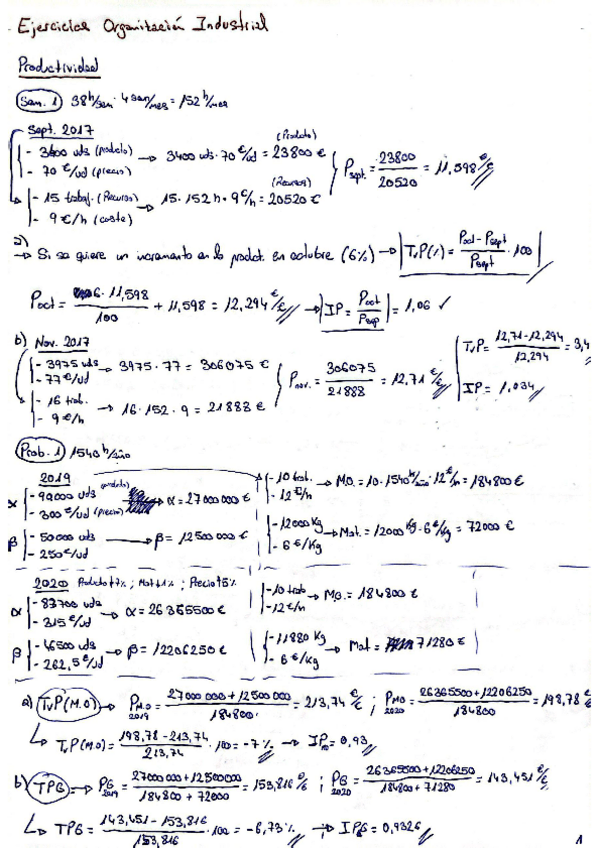 Ejercicios Organización Industrial
Productividad
Sem. 1 38 h/sem · 4 sem/mes = 152 h/mes
Sept. 2017
- 3400 uds (producto) → 3400 uds · 70 €/ud = 23800 € (Producto)
- 70 €/ud (precio)
- 15 trabaj. (Recursos) → 15 · 152 h · 9 €/h = 20520 € (Recursos)
- 9 €/h (coste)
Psept. = 23800 / 20520 = 11,598 €/€
a)
→ Si se quiere un incremento en la product. en octubre (6%) → TvP(%) = Poct - Psept / Psept · 100
Poct = 6 · 11,598 / 100 + 11,598 = 12,294 €/€ → IP = Poct / Psep = 1,06 ✓
b) Nov. 2017
- 3975 uds → 3975 · 77 = 306075 €
- 77 €/ud
- 16 trab. → 16 · 152 · 9 = 21888 €
- 9 €/h
Pnov. = 306075 / 21888 = 12,71 €/€
TvP = 12,71 - 12,294 / 12,294 = 3,4
IP = 1,034
Prob. 1 1540 h/año
2019
α - 90000 uds (producto) → α = 27000000 €
- 300 €/ud (precio)
β - 50000 uds → β = 12500000 €
- 250 €/ud
- 10 trab. → M.O. = 10 · 1540 h/año · 12 €/h = 184800 €
- 12 €/h
- 12000 Kg → Mat. = 12000 Kg · 6 €/Kg = 72000 €
- 6 €/Kg
2020 Producto ↓7% ; Mat ↓1% ; Precio ↑5%
α - 83700 uds → α = 26365500 €
- 315 €/ud
β - 46500 uds → β = 12206250 €
- 262,5 €/ud
- 10 trab → M.O. = 184800 €
- 12 €/h
- 11880 Kg → Mat = 71280 €
- 6 €/Kg
a) TvP(M.O) → PM.O. 2019 = 27000000 + 12500000 / 184800 = 213,74 €/€ ; PMO 2020 = 26365500 + 12206250 / 184800 = 198,78 €/€
↳ TvP(M.O) = 198,78 - 213,74 / 213,74 · 100 = -7 % → IPMO = 0,93
b) TPG → PG 2019 = 27000000 + 12500000 / 184800 + 72000 = 153,816 €/€ ; PG 2020 = 26365500 + 12206250 / 184800 + 71280 = 143,451 €/€
↳ TPG = 143,451 - 153,816 / 153,816 · 100 = -6,73 % → IPG = 0,9326
1